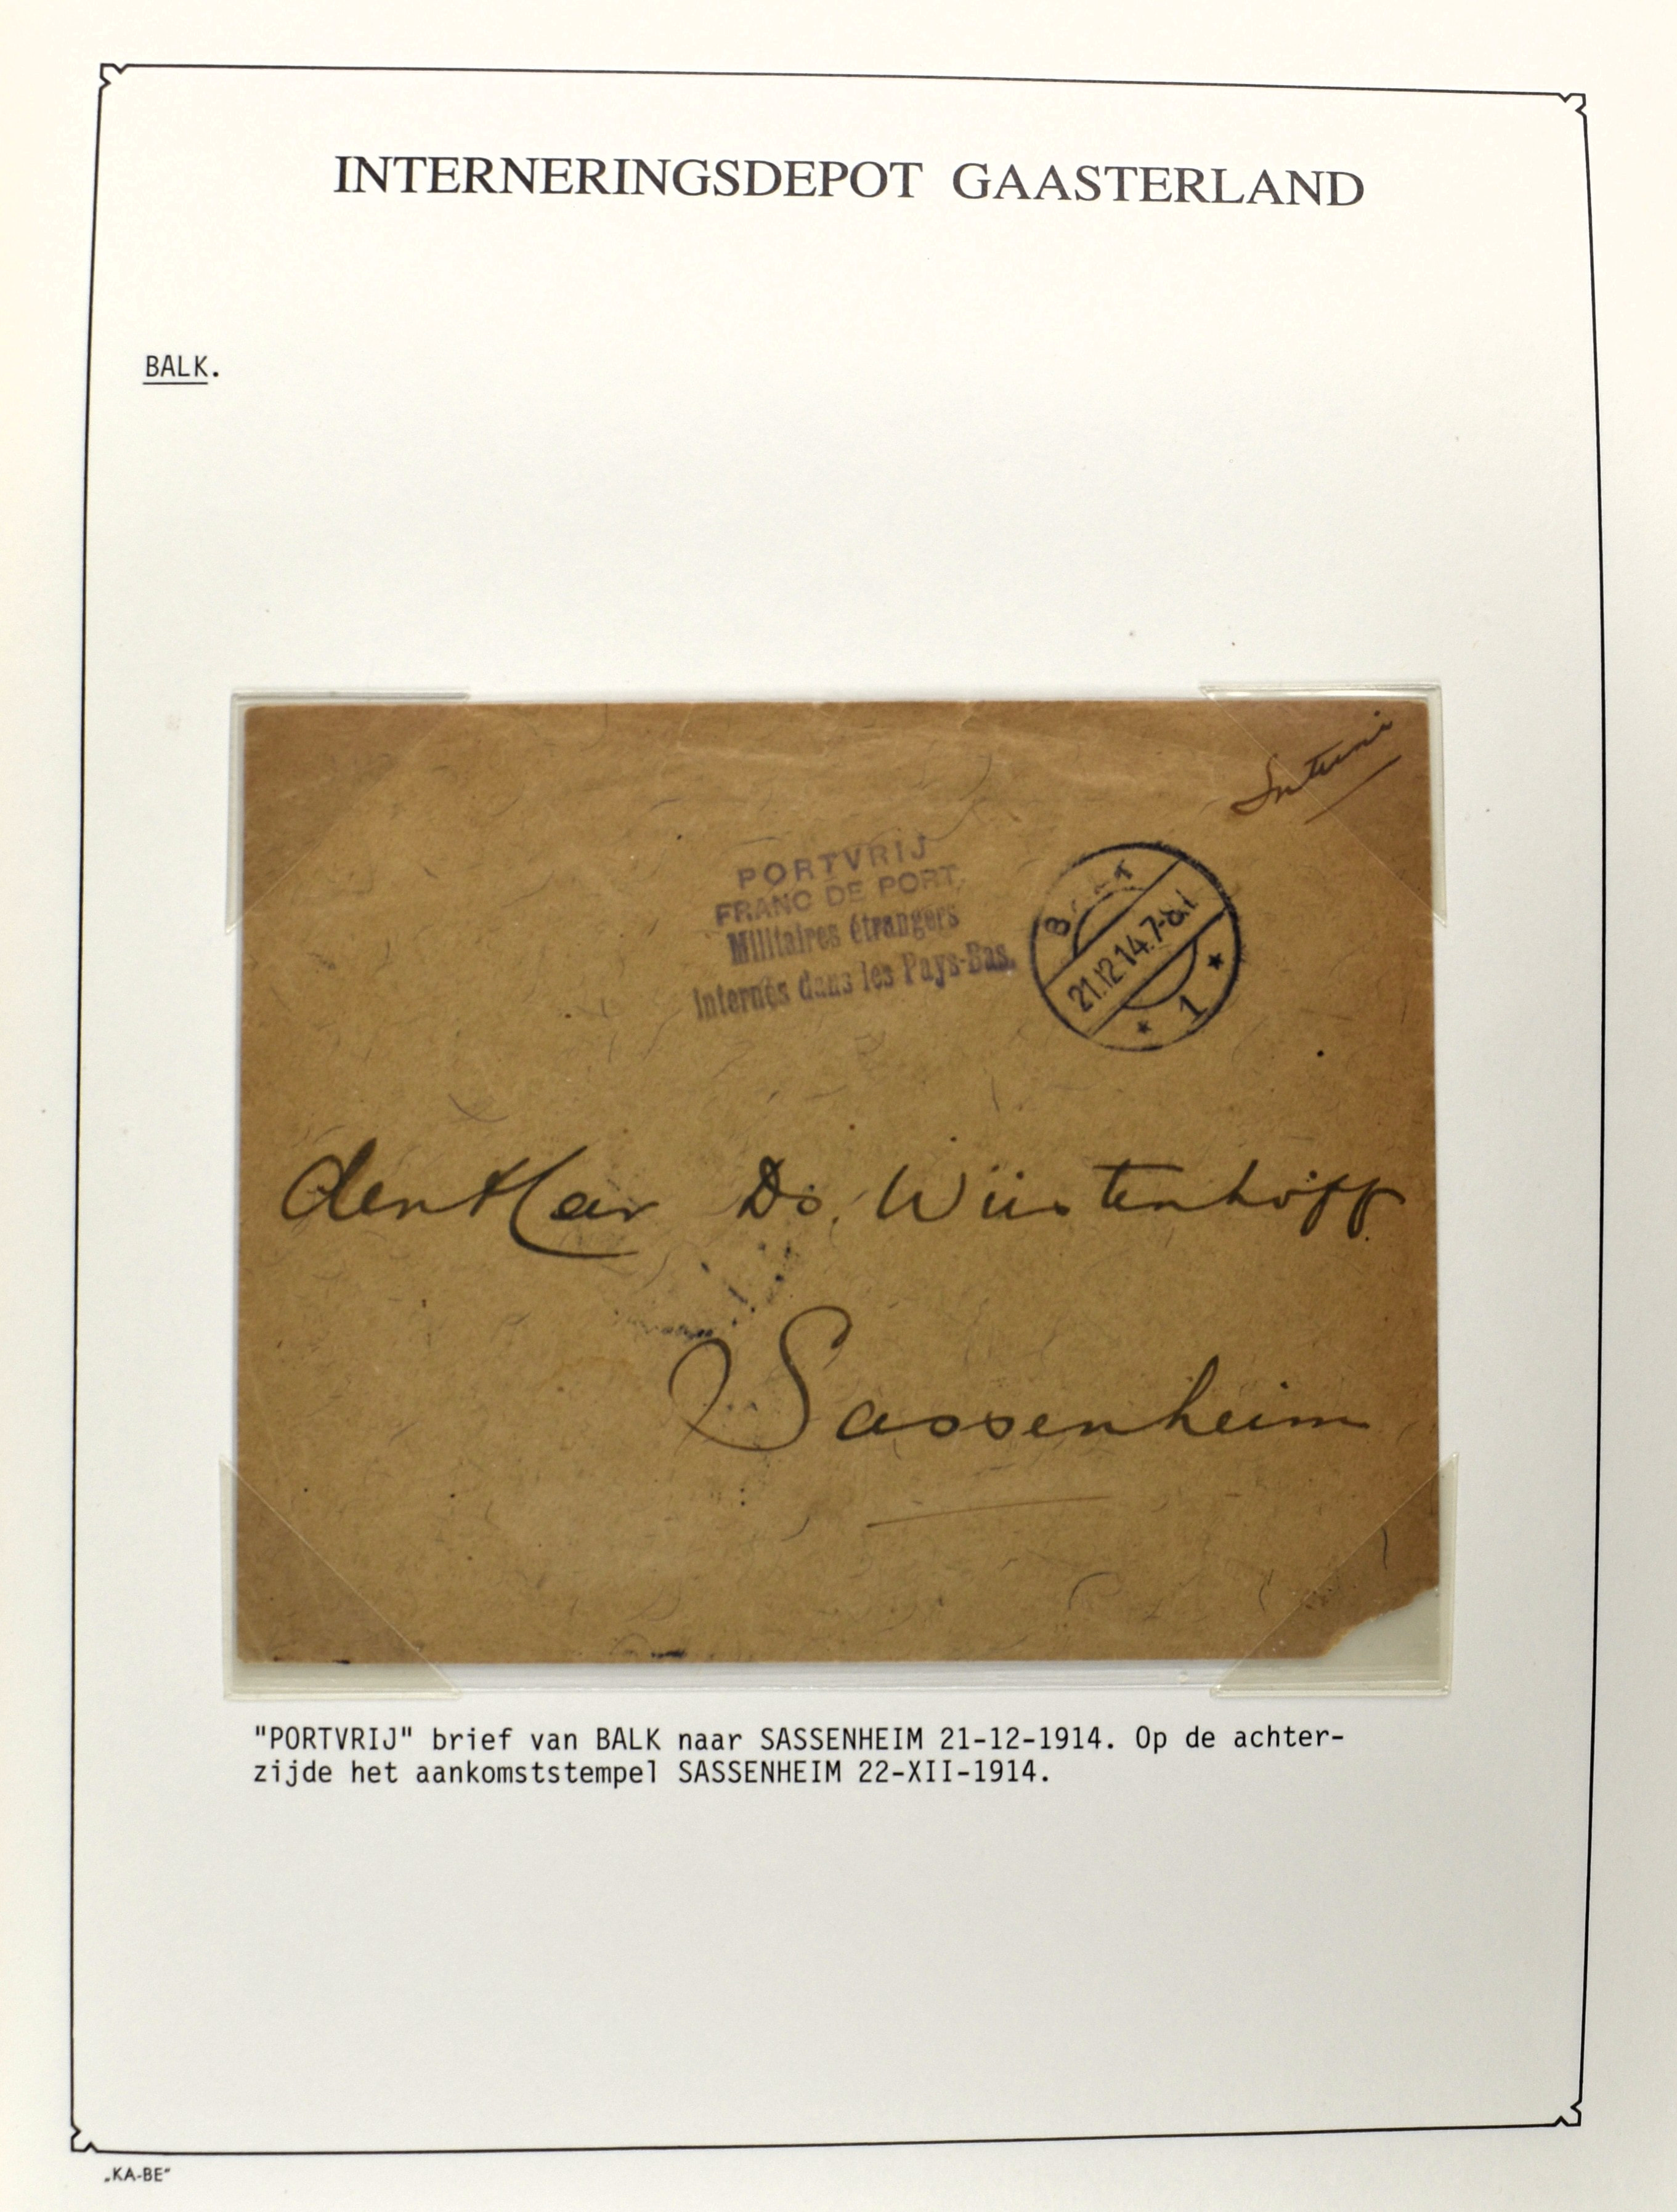 INTERNERINGSDEPOT GAASTERLAND
BALK.
PORTVRIJ
FRANC DE PORT
Militaires étrangers
Internés dans les Pays-Bas.
21.12.14.7-8.V
1
den Heer Ds. Wüstenhöff
Sassenheim
"PORTVRIJ" brief van BALK naar SASSENHEIM 21-12-1914. Op de achter-
zijde het aankomststempel SASSENHEIM 22-XII-1914.
„KA-BE"